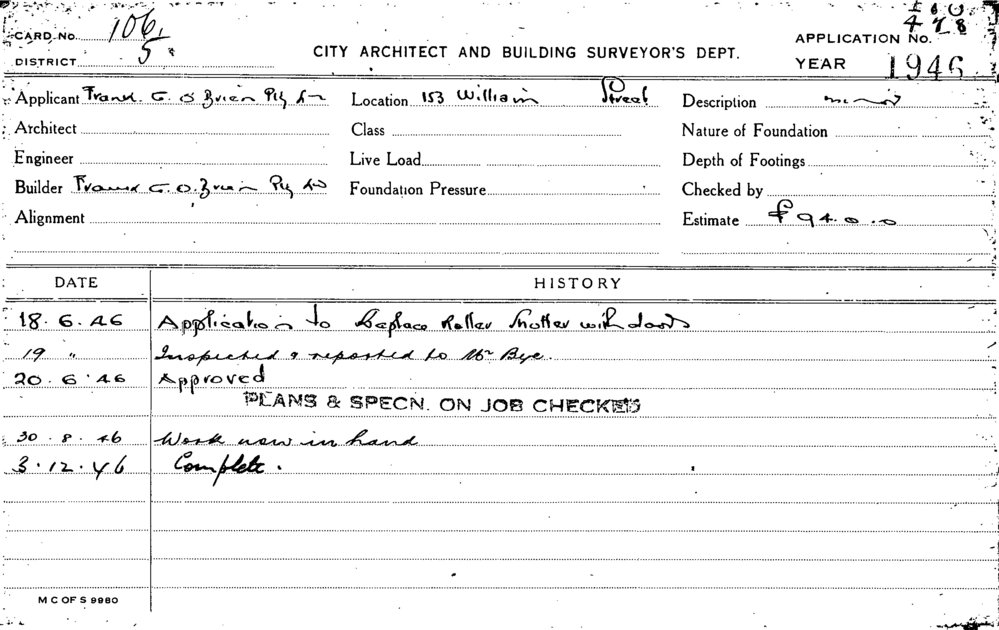 CARD No. 106/5
DISTRICT
CITY ARCHITECT AND BUILDING SURVEYOR'S DEPT.
APPLICATION No. 478
YEAR 1946
Applicant Frank G. O'Brien Pty Ltd Location 153 William Street Description minor
Architect Class Nature of Foundation
Engineer Live Load Depth of Footings
Builder Frank G. O.Brien Pty Ltd Foundation Pressure Checked by
Alignment Estimate £94.0.0
DATE HISTORY
18.6.46 Application to Replace Roller Shutter with doors
19 " Inspected & reported to Mr Bye.
20.6.46 Approved
PLANS & SPECN. ON JOB CHECKED
30.8.46 Work now in hand
3.12.46 Complete.
M C OF S 9980